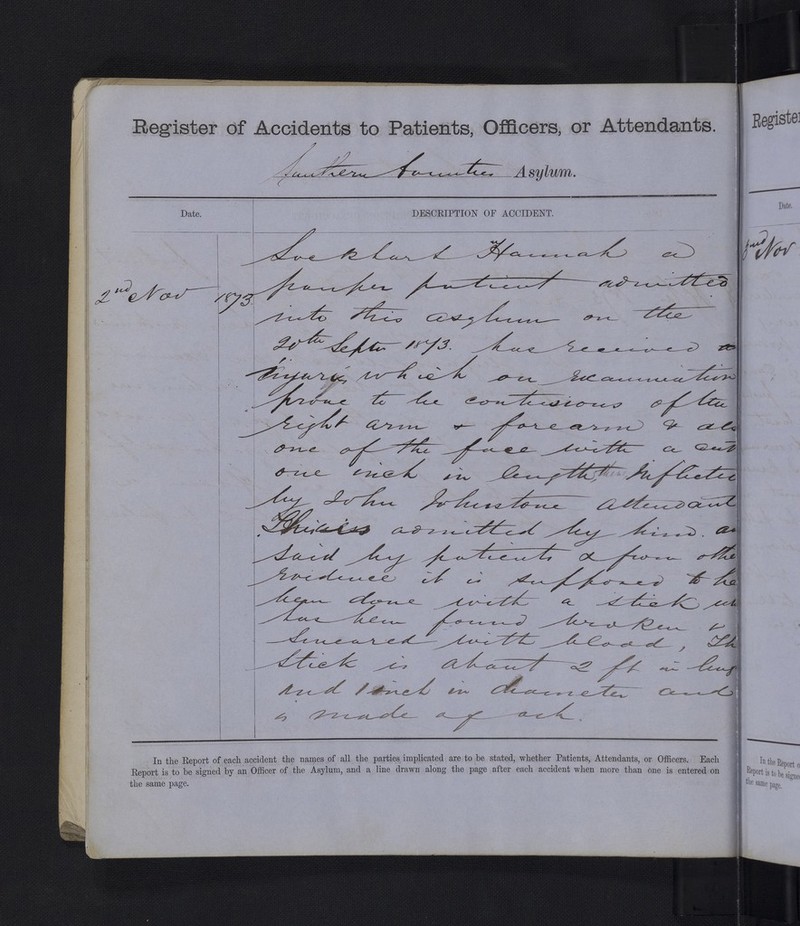 Register of Accidents to Patients, Officers, or Attendants.
Southern Counties Asylum.
Date.
DESCRIPTION OF ACCIDENT.
Lockhart Hannah a
2nd Nov 1873 pauper patient admitted
into this asylum on the
20th Septr 1873. has received
injuries which on examination
prove to be contusions of the
right arm & forearm & als
one of the face with a cut
one inch in length Inflicted
by John Johnstone attendant
This is admitted by him. an
said by patients & from othe
evidence it is supposed to ha
been done with a stick wh
has been found broken &
smeared with blood, Th
stick is about 2 ft in leng
and 1 inch in diameter and
is made of ash.
In the Report of each accident the names of all the parties implicated are to be stated, whether Patients, Attendants, or Officers. Each
Report is to be signed by an Officer of the Asylum, and a line drawn along the page after each accident when more than one is entered on
the same page.
Register
Date.
Nov
In the Report o
Report is to be signed
the same page.